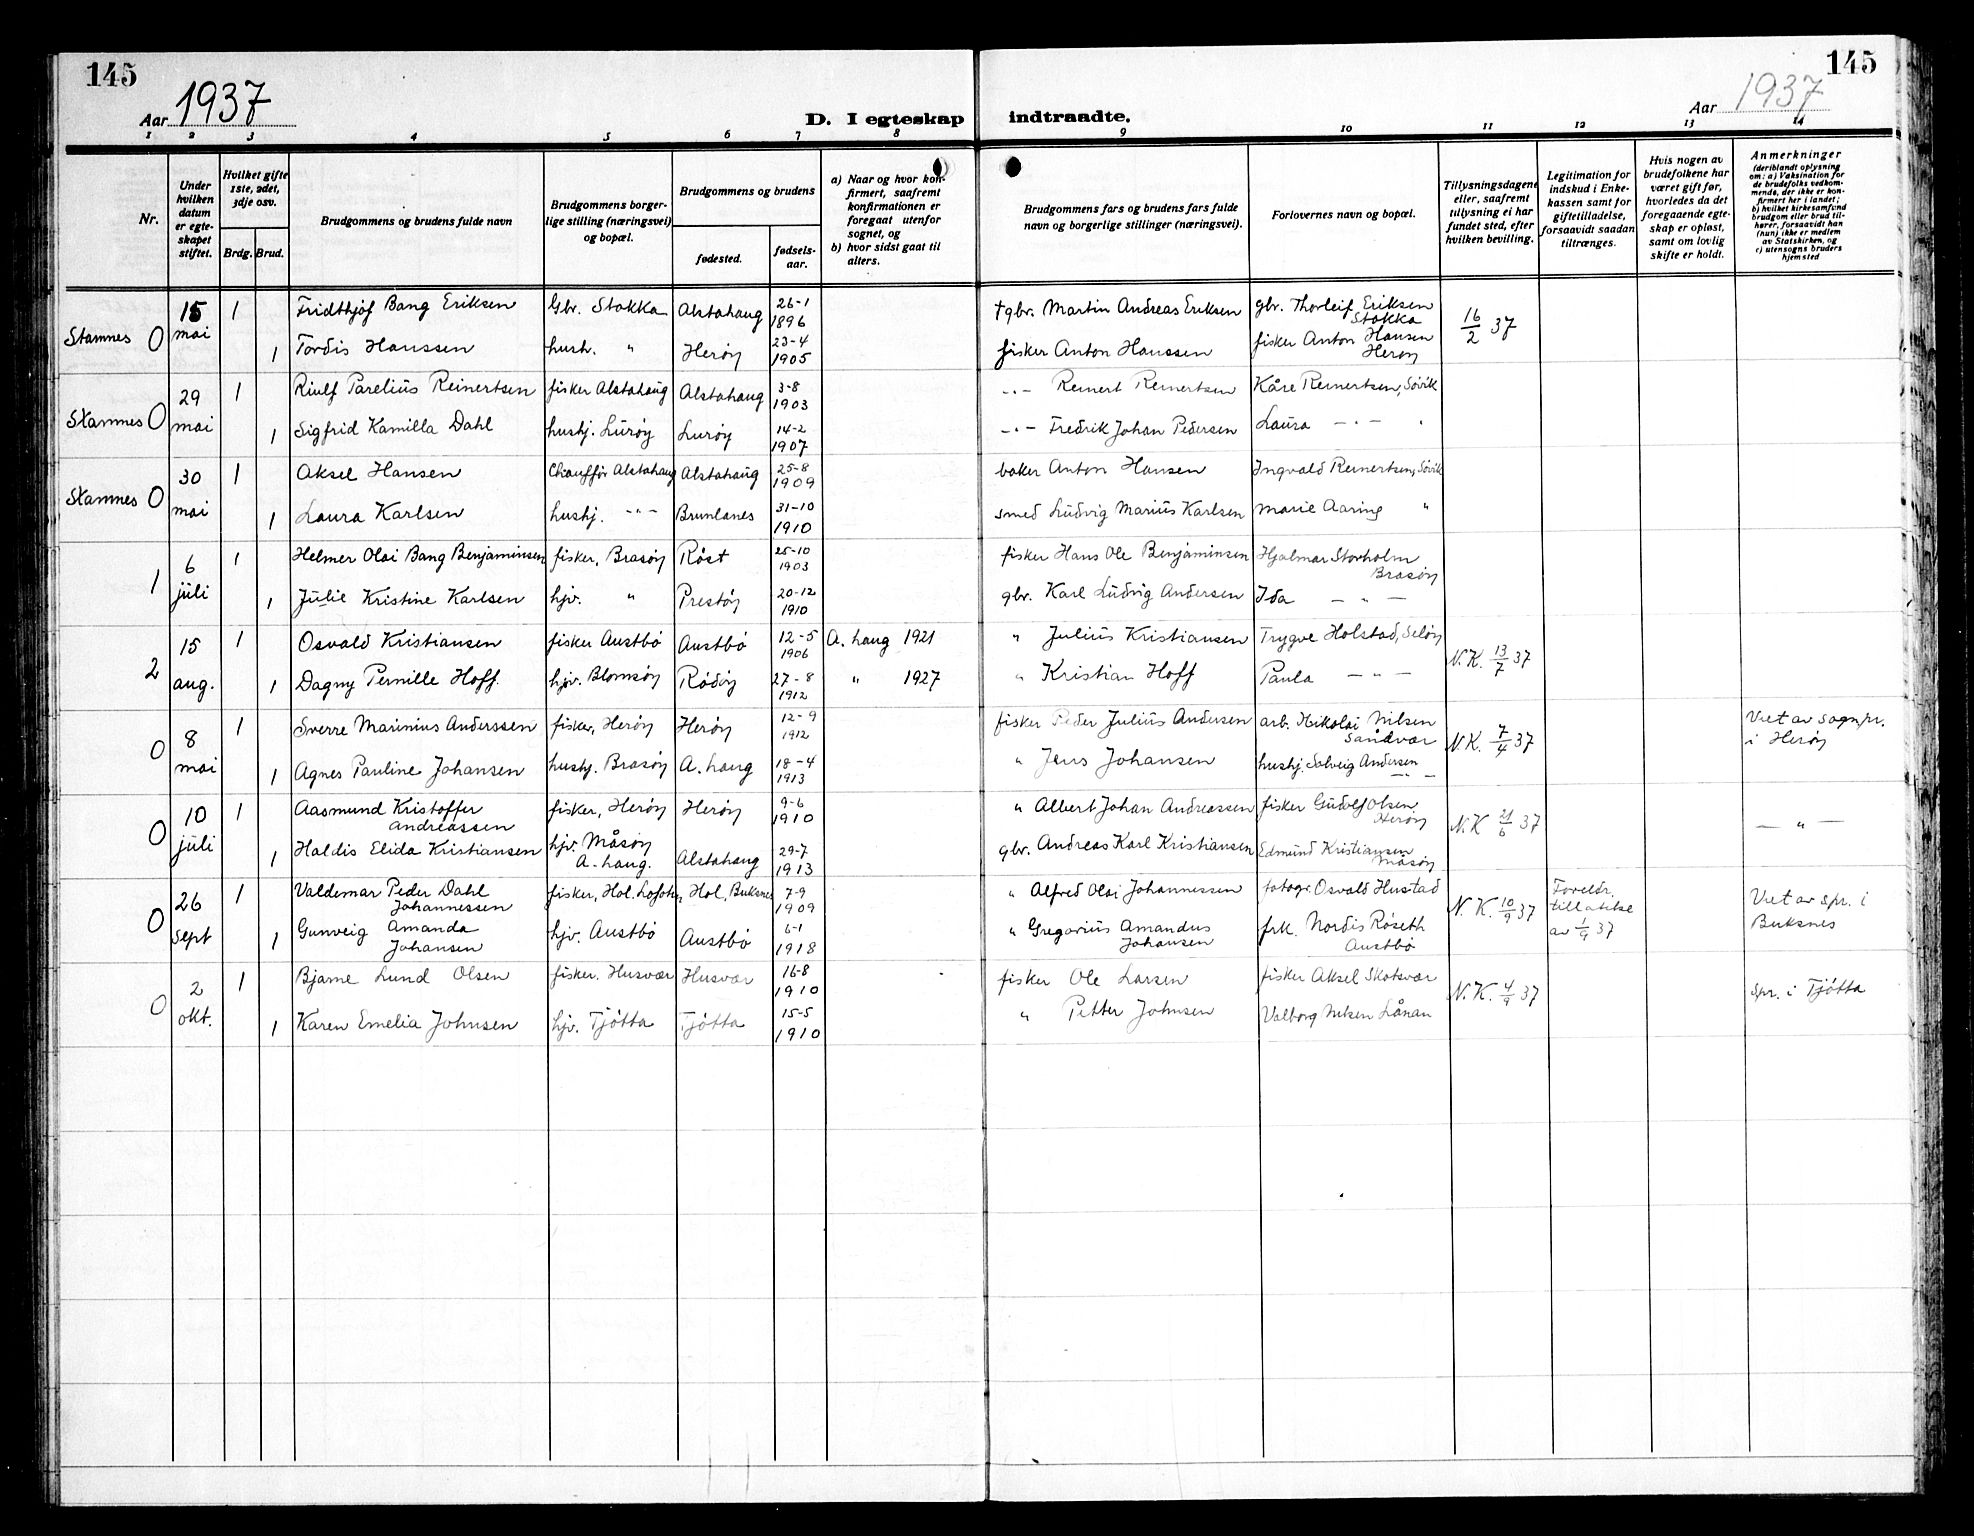 145
Aar 1937
D. I egteskap
indtraadte.
Aar 1937
145
1 2 3 4 5 6 7 8 9 10 11 12 13 14
Nr.
Under hvilken datum er egteskapet stiftet.
Hvilket gifte 1ste, 2det, 3dje osv.
Brdg. Brud.
Brudgommens og brudens fulde navn
Brudgommens borgerlige stilling (næringsvei) og bopæl.
Brudgommens og brudens
fødested.
fødselsaar.
a) Naar og hvor konfirmert, saafremt konfirmationen er foregaat utenfor sognet, og
b) hvor sidst gaat til alters.
Brudgommens fars og brudens fars fulde navn og borgerlige stillinger (næringsvei).
Forlovernes navn og bopæl.
Tillysningsdagene eller, saafremt tillysning ei har fundet sted, efter hvilken bevilling.
Legitimation for indskud i Enkekassen samt for giftetilladelse, forsaavidt saadan tiltrænges.
Hvis nogen av brudefolkene har været gift før, hvorledes da det foregaaende egteskap er opløst, samt om lovlig skifte er holdt.
Anmerkninger
(deriblandt oplysning om: a) Vaksination for de brudefolks vedkommende, der ikke er konfirmert her i landet; b) hvilket kirkesamfund brudgom eller brud tilhører, forsaavidt han (hun) ikke er medlem av Statskirken, og c) utensogns bruders hjemsted
Stamnes 0 15 mai 1 Fridthjof Bang Eriksen Gbr. Stokka Alstahaug 26-1 1896 † gbr. Martin Andreas Eriksen gbr. Thorleif Eriksen Stokka 16/2 37
1 Tordis Hanssen hush. " Herøy 23-4 1905 fisker Anton Hanssen fisker Anton Hansen Herøy
Stamnes 0 29 mai 1 Riulf Parelius Reinertsen fisker Alstahaug Alstahaug 3-8 1903 -"- Reinert Reinertsen Kåre Reinertsen, Søvik
1 Sigfrid Kamilla Dahl hushj. Lurøy Lurøy 14-2 1907 -"- Fredrik Johan Pedersen Laura -"- "
Stamnes 0 30 mai 1 Aksel Hansen Chauffør Alstahaug Alstahaug 25-8 1909 baker Anton Hansen Ingvald Reinertsen, Søvik
1 Laura Karlsen hushj. -"- Brunlanes 31-10 1910 smed Ludvig Marius Karlsen Marie Aaring "
1 6 juli 1 Helmer Olai Bang Benjaminsen fisker, Brasøy Røst 25-10 1903 fisker Hans Ole Benjaminsen Hjalmar Storholm Brasøy
1 Julie Kristine Karlsen hjv. " Prestøy 20-12 1910 gbr. Karl Ludvig Andersen Ida - " -
2 15 aug. 1 Osvald Kristiansen fisker Austbø Austbø 12-5 1906 A. haug 1921 " Julius Kristiansen Trygve Holstad, Seløy N.K. 13/7 37
1 Dagny Pernille Hoff. hjv. Blomsøy Rødøy 27-8 1912 " 1927 " Kristian Hoff Paula - " -
0 8 mai 1 Sverre Marinius Anderssen fisker, Herøy Herøy 12-9 1912 fisker Peder Julius Andersen arb. Nikolai Nilsen Sandvær N.K. 7/4 37 Viet av sognpr. i Herøy
1 Agnes Pauline Johansen hushj. Brasøy A. haug 18-4 1913 " Jens Johansen hushj. Solveig Andersen - " -
0 10 juli 1 Aasmund Kristoffer Andreassen fisker, Herøy Herøy 9-6 1910 " Albert Johan Andreassen fisker Gudolf Olsen Herøy N.K 21/6 37 - " -
1 Haldis Elida Kristiansen hjv. Måsøy A. haug. Alstahaug 29-7 1913 gbr. Andreas Karl Kristiansen Edmund Kristiansen Måsøy
0 26 sept 1 Valdemar Peder Dahl Johannessen fisker, Hol. Lofoten Hol, Buksnes 7-9 1909 " Alfred Olai Johannessen fotogr. Osvald Hustad N.K. 10/9 37 Foreldr. tillatelse av 1/9 37 Viet av spr. i Buksnes
1 Gunveig Amanda Johansen hjv. Austbø Austbø 6-1 1918 " Gregorius Amandus Johansen frk. Nordis Røseth Austbø
0 2 okt. 1 Bjarne Lund Olsen fisker. Husvær Husvær 16-8 1910 fisker Ole Larsen fisker Aksel Skotsvær N.K. 4/9 37 spr. i Tjøtta
1 Karen Emelia Johnsen hjv. Tjøtta Tjøtta 15-5 1910 " Petter Johnsen Valborg Nilsen Lånan